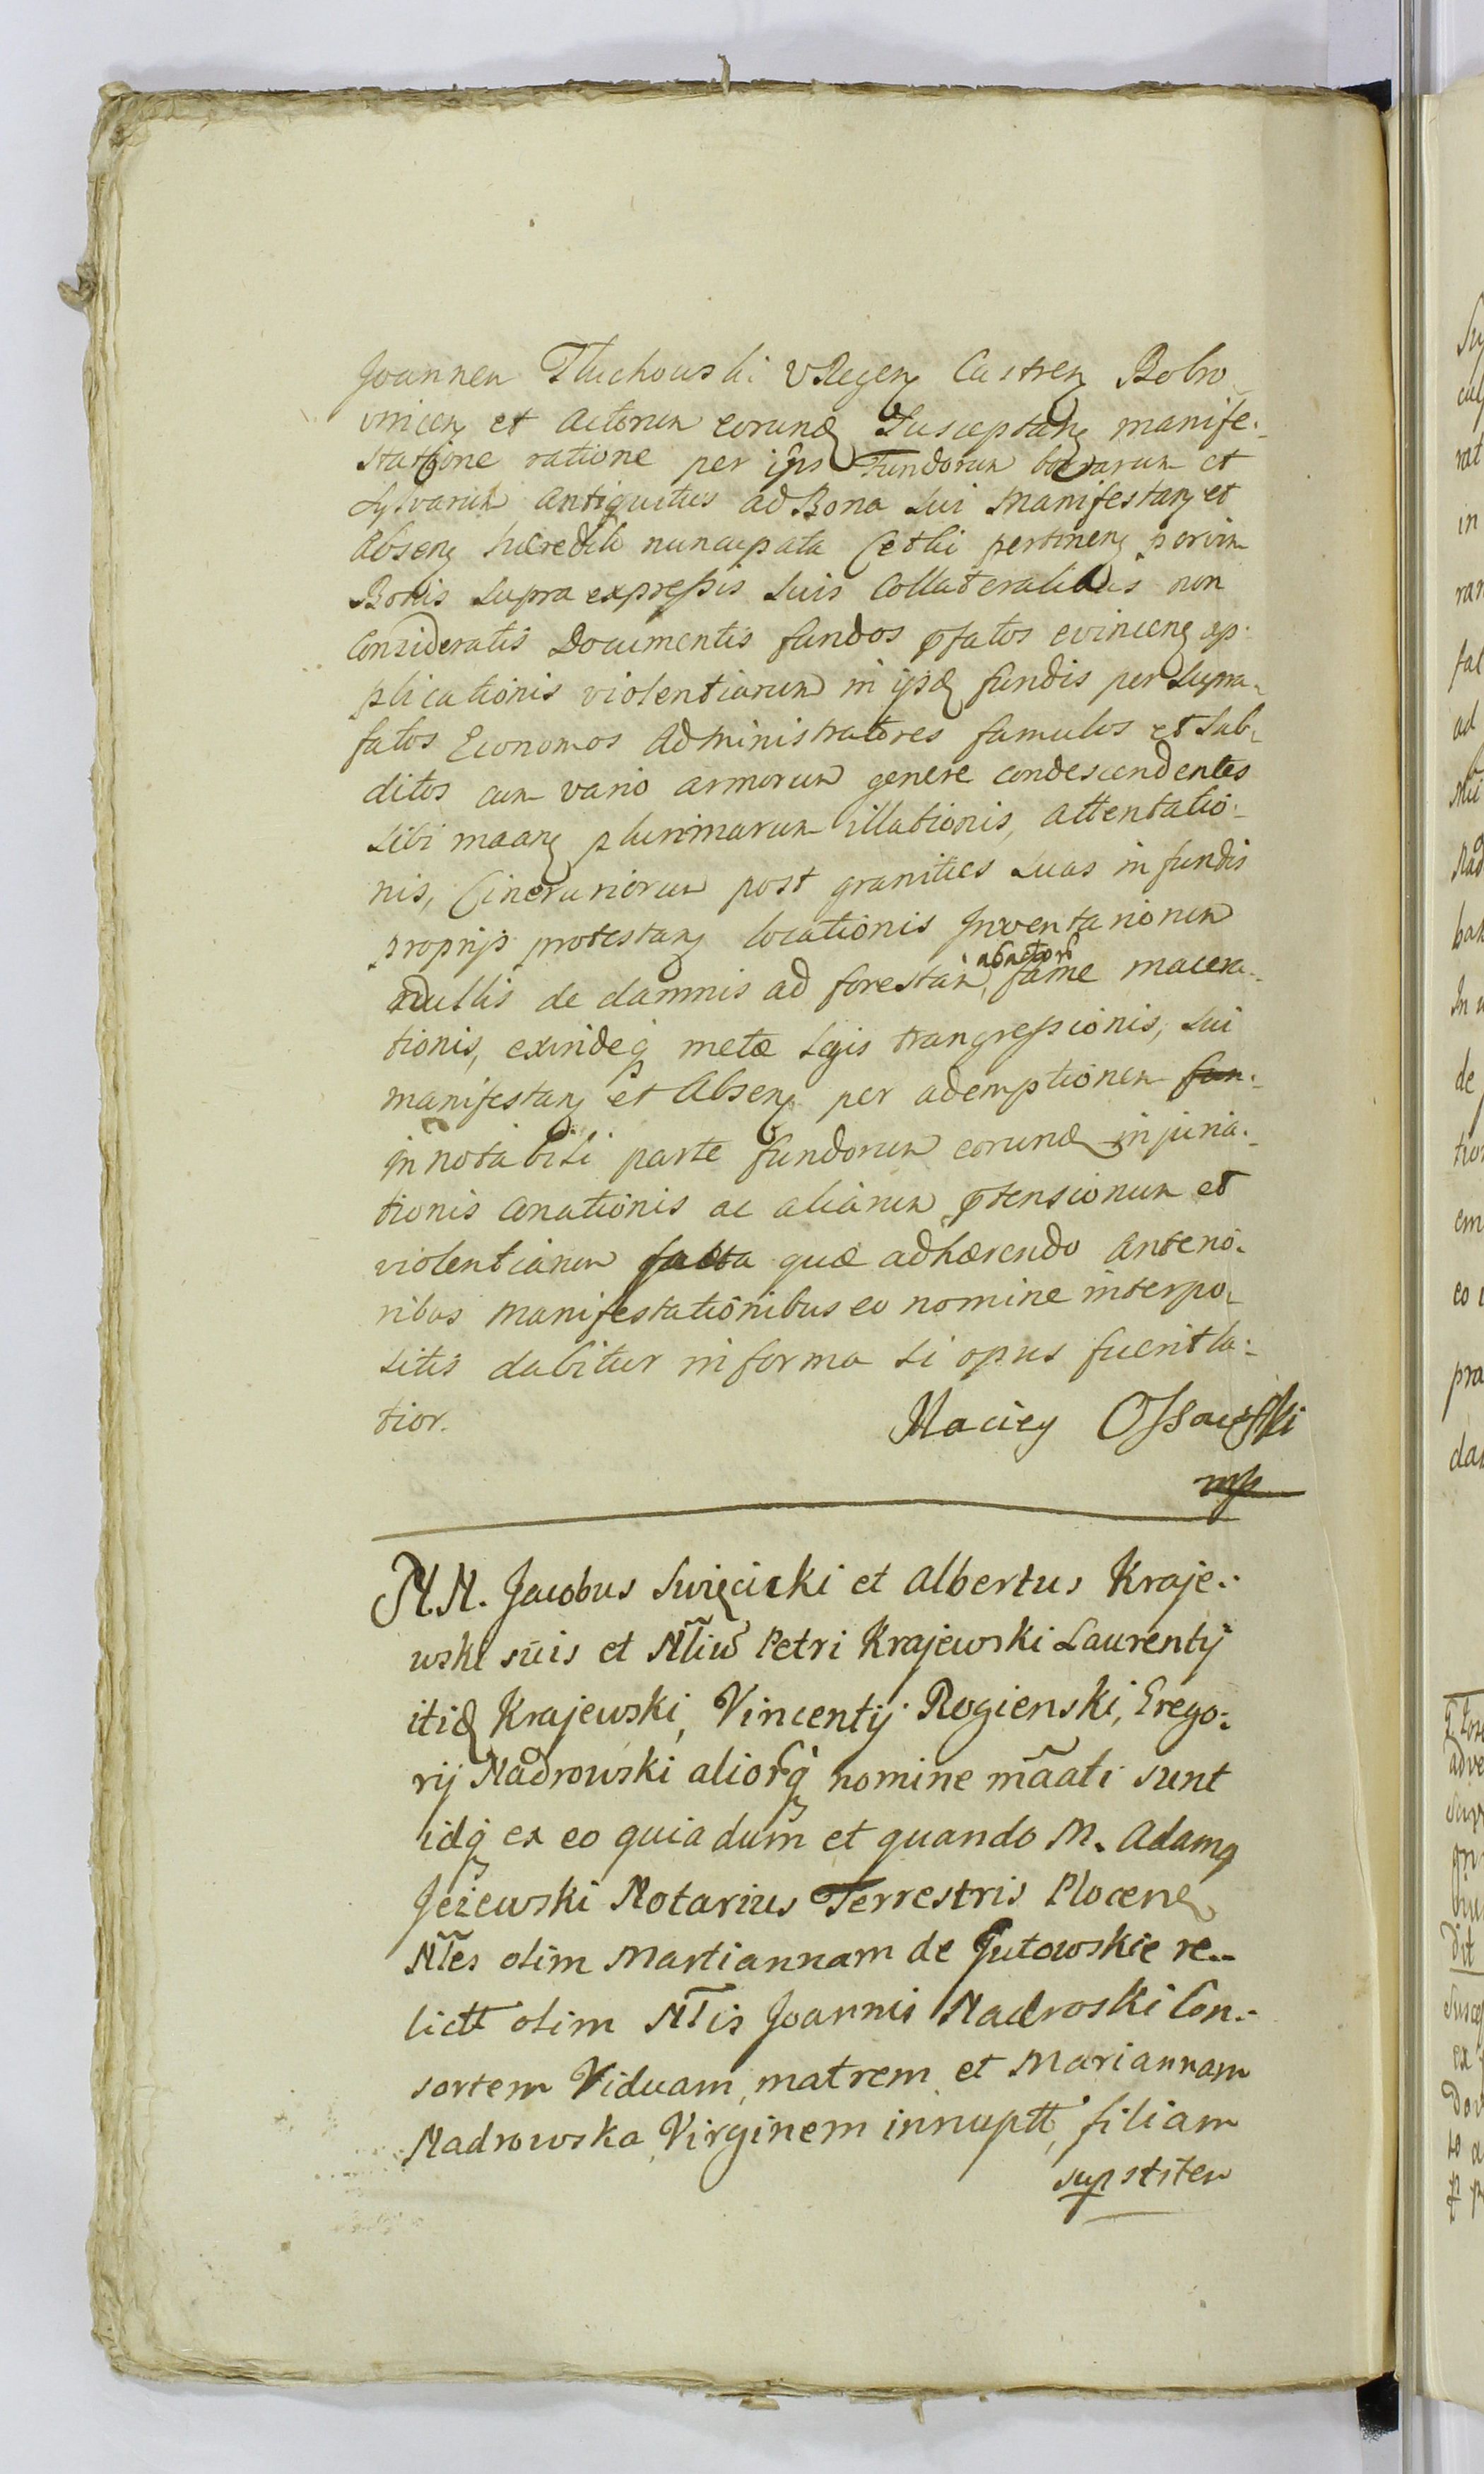 Joannem Tłuchowski VRegen Castren Bobro
vnicen et Actorum eorund Susceptan manife-
statione ratione per ips Fundorum borrarum et
Sylvarum antiquitus ad Bona sui Manifestan et
Absen hæredit nuncupata Cetki pertinen parim
Bonis supra expressis suis Collateralibus non
Consideratis Documentis fundos pfatos evincen ap-
plicationis violentiarum in ipsd fundis per supra-
fatos Economos Administratores famulos et Sub-
ditos cum vario armorum genere condescendentes
sibi maan plurimarum illationis, attentatio-
nis, Cinerariorum post granities suas in fundis
proprijs protestan locationis Inventariorum
nullis de damnis ad forestam, abactorum fame macera-
tionis, exindeq metæ Legis trangressionis, sui
manifestan et Absen per ademptionem fun-
in notabili parte fundorum eorund injuria-
tionis conationis ac aliarum ptensionum et
violentiarum facta quæ adhærendo anterio-
ribus manifestationibus eo nomine interpo-
sitis dabitur in forma si opus fuerit la-
tior.
Maciey Ossowski
mp
M.M. Jacobus Swięcicki et Albertus Kraje-
wski suis et Mliũ Petri Krajewski Laurentij
itid Krajewski, Vincentij Rogienski, Grego-
rij Nadrowski aliorq nomine mãati sunt
idq ex eo quia dum et quando M. Adamq
Jeżewski Notarius Terrestris Plocen
Mles olim Martiannam de Gutowskie re-
lictt olim Mlis Joannis Nadroski Con-
sortem Viduam, matrem et Mariannam
Nadrowska Virginem innuptt, filiam
supstitem